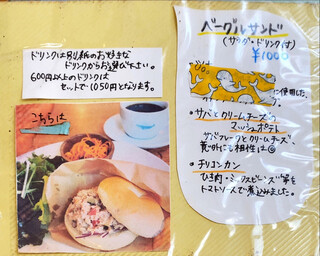 ドリンクは別紙のお好きな
ドリンクからお選び下さい。
600円以上のドリンクは
セットで1050円となります。
こちらは
ベーグルサンド
(サラダ・ドリンク付)
¥1000
に使用した
・サバとクリームチーズの
マッシュポテト
サバフレークとクリームチーズ
意外にも相性は◎
・チリコンカン
ひき肉・ミックスビーンズ等を
トマトソースで煮込みました。